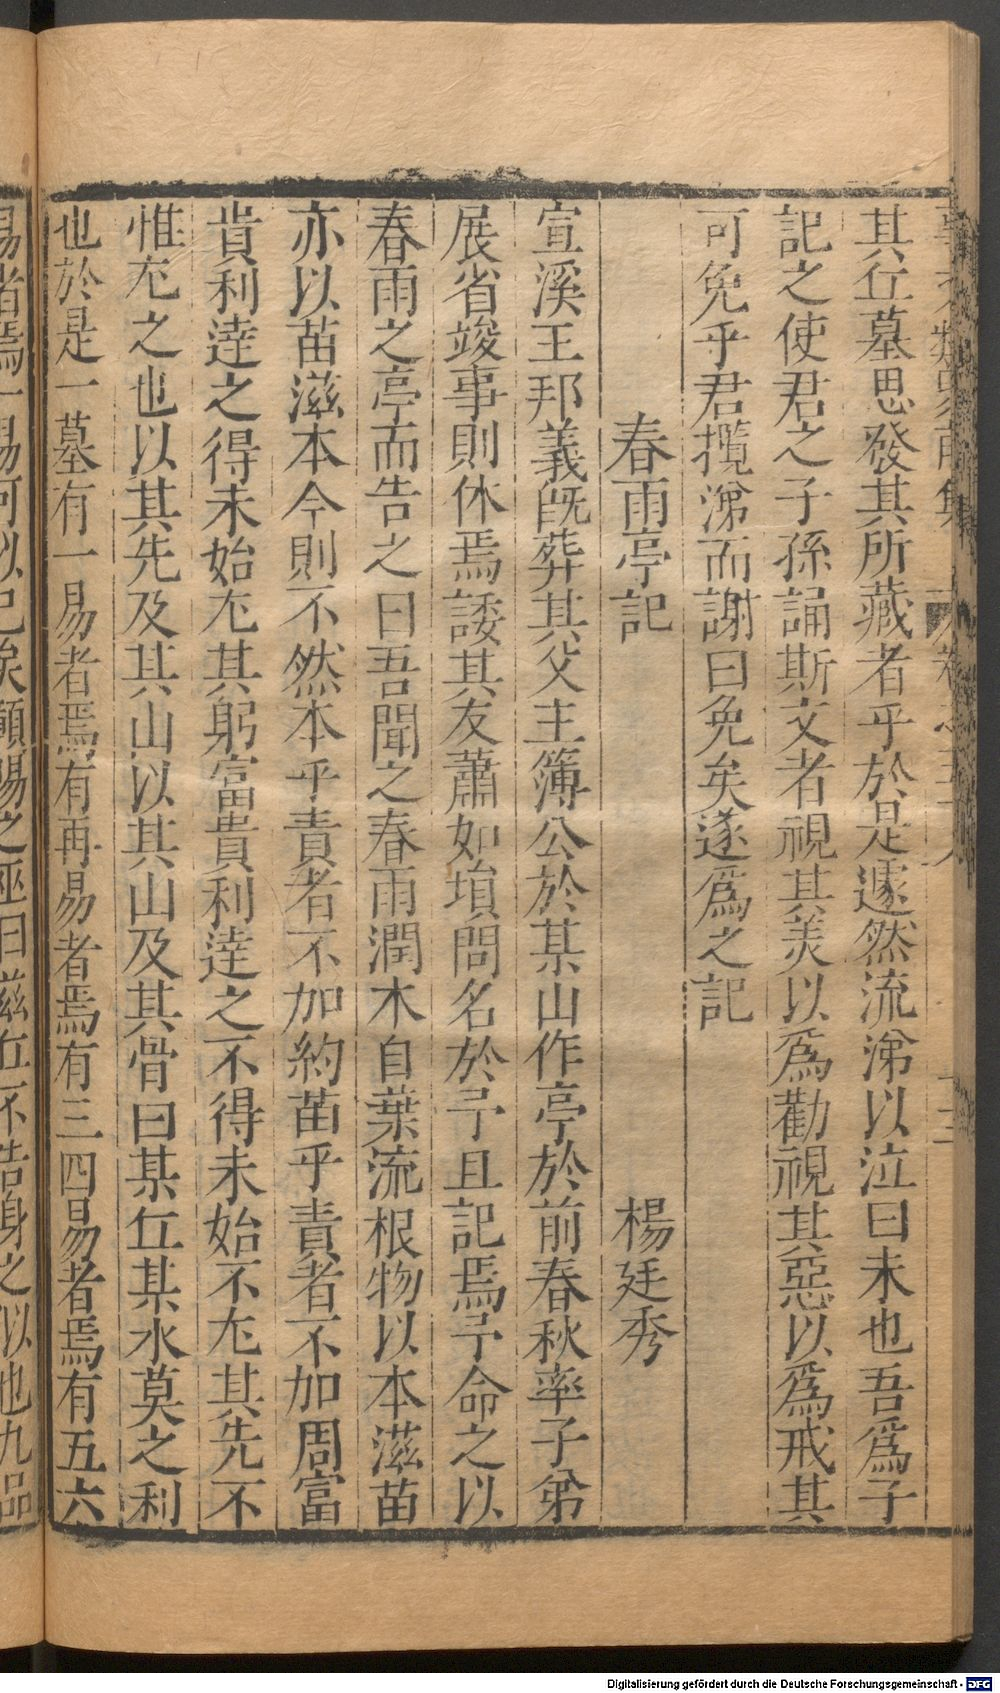 其丘墓思發其所藏者乎於是遽然流涕以泣曰未也吾爲子
記之使君之子孫誦斯文者視其美以爲勸視其惡以爲戒其
可免乎君攬涕而謝曰免矣遂爲之記
春雨亭記 楊廷秀
宣溪王邦義旣葬其父主簿公於某山作亭於前春秋率子弟
展省竣事則休焉諉其友蕭如塤問名於予且記焉予命之以
春雨之亭而告之曰吾聞之春雨潤木自葉流根物以本滋苗
亦以苗滋本今則不然本乎責者不加約苗乎責者不加周富
貴利達之得未始尢其躬富貴利達之不得未始不尢其先不
惟尢之也以其先及其山以其山及其骨曰某丘某水莫之利
也於是一墓有一易者焉有再易者焉有三四易者焉有五六
Digitalisierung gefördert durch die Deutsche Forschungsgemeinschaft - DFG